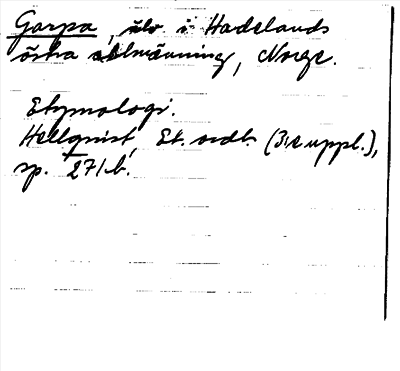 Garpa, älv i Hadelands
östra almänning, Norge.
Etymologi.
Hellqvist, Et. ordb. (3:e uppl.),
sp. 271 b.